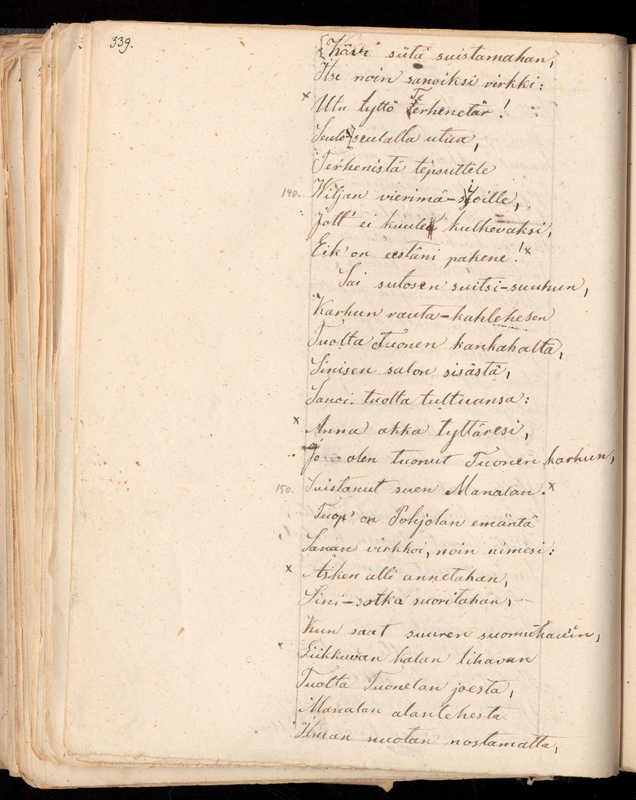 339.
[Kävi siitä suistamahan,
Itse noin sanoiksi virkki:
x Utu tyttö Terhenetär!
Seulo seulalla utua,
Terhenistä teputtele
140. Wiljan vierimä-sijoille,
Jott' ei kuule kulkevaksi,
Eik' on eestäni pakene!x
Sai sutosen suitsi-suuhun,
Karhun rauta-kahlehesen
Tuolta Tuonen kankahalta,
Sinisen salon sisästä,
Sanoi tuolta tultuansa:
x Anna akka tyttäresi,
Jo olen tuonut Tuonen karhun,
150. Suistanut suen Manalan.x
Tuop' on Pohjolan emäntä
Sanan virkkoi, noin nimesi:
x Äsken alli annetahan,
Sini-sotka suoritahan,
Kun saat suuren suomuhauin,
Liikkuvan kalan lihavan
Tuolta Tuonelan joesta,
Manalan alantehesta
Ilman nuotan nostamatta,